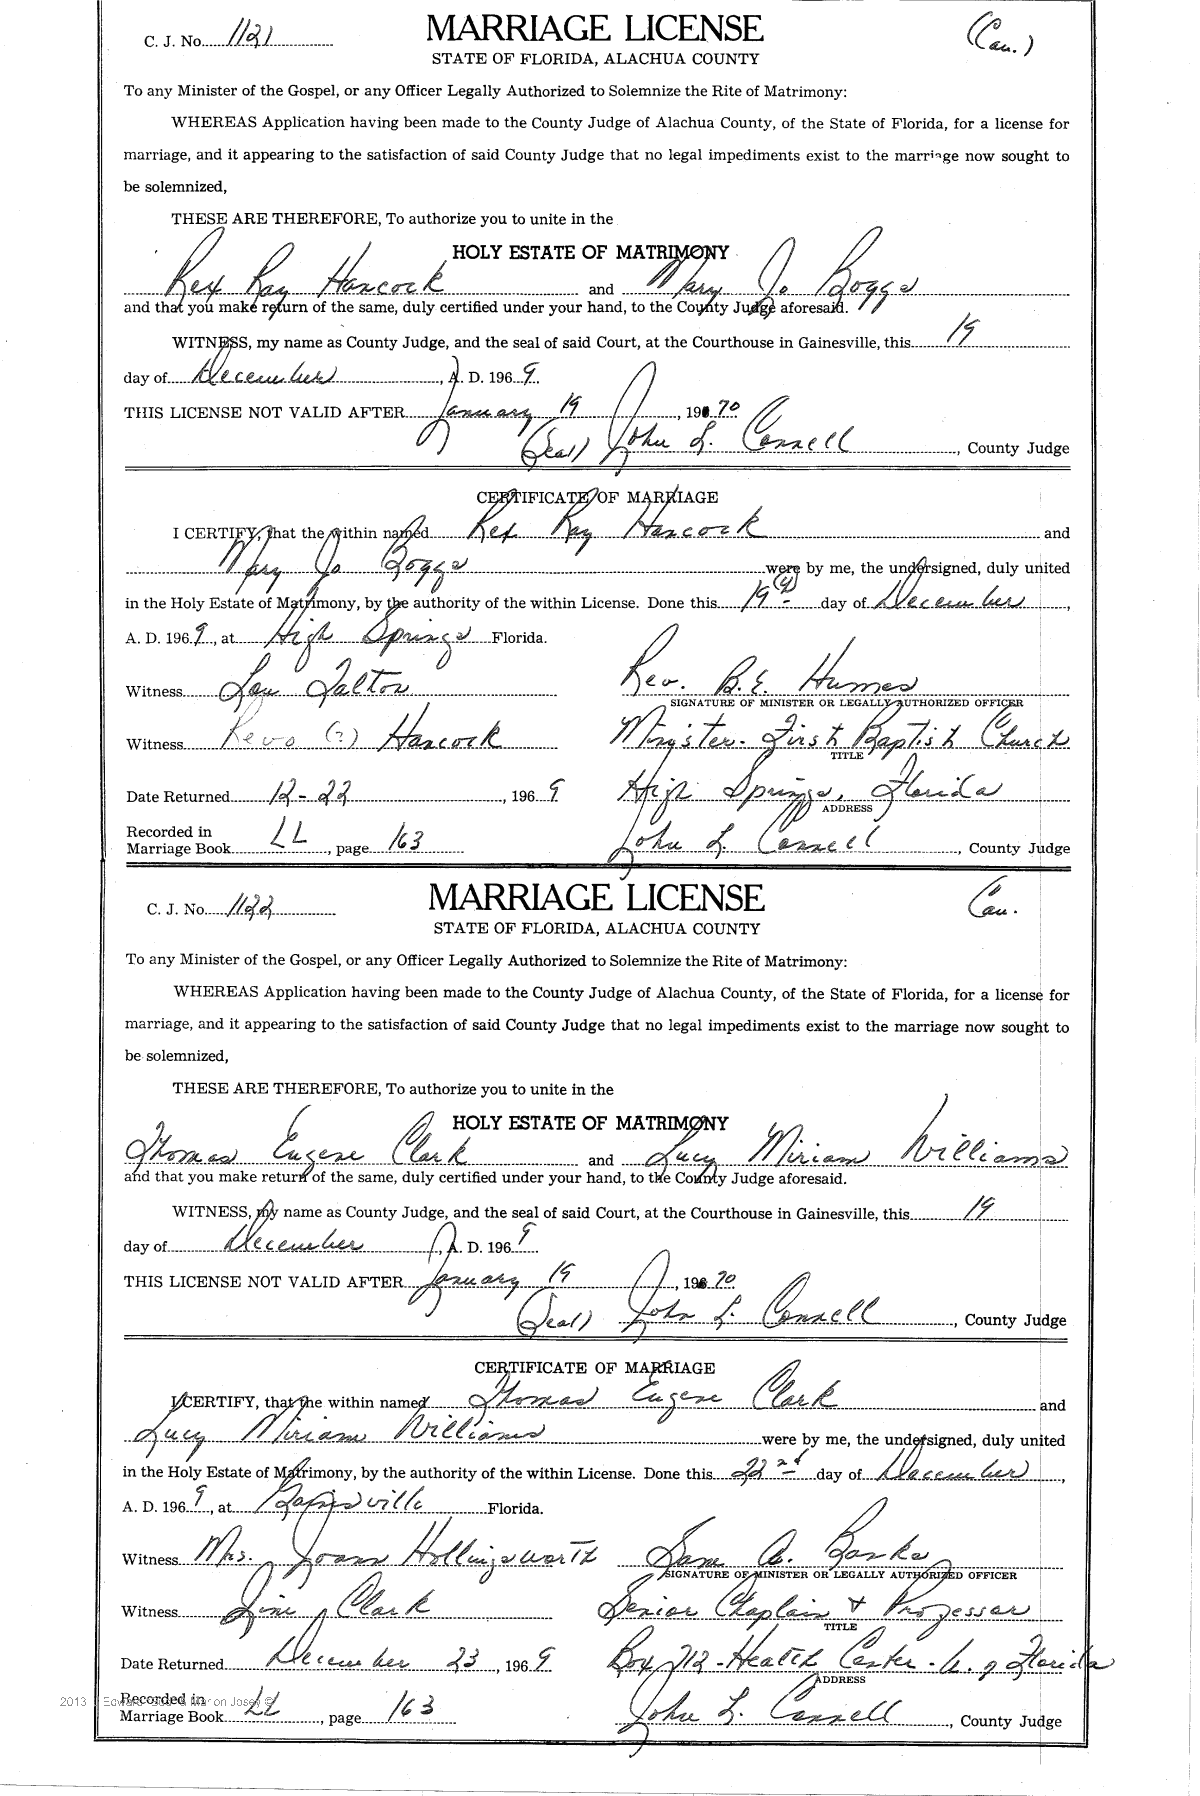 C. J. No. 1121
MARRIAGE LICENSE
(Cau.)
STATE OF FLORIDA, ALACHUA COUNTY
To any Minister of the Gospel, or any Officer Legally Authorized to Solemnize the Rite of Matrimony:
WHEREAS Application having been made to the County Judge of Alachua County, of the State of Florida, for a license for
marriage, and it appearing to the satisfaction of said County Judge that no legal impediments exist to the marriage now sought to
be solemnized,
THESE ARE THEREFORE, To authorize you to unite in the
HOLY ESTATE OF MATRIMONY
Rex Ray Hancock and Mary Jo Boggs
and that you make return of the same, duly certified under your hand, to the County Judge aforesaid.
WITNESS, my name as County Judge, and the seal of said Court, at the Courthouse in Gainesville, this 19
day of December, A. D. 1969.
THIS LICENSE NOT VALID AFTER January 19, 1970
(Seal) John L. Connell, County Judge
CERTIFICATE OF MARRIAGE
I CERTIFY, that the within named Rex Ray Hancock and
Mary Jo Boggs were by me, the undersigned, duly united
in the Holy Estate of Matrimony, by the authority of the within License. Done this 19 day of December,
A. D. 1969, at High Springs Florida.
Witness Lou Talton Rev. B.E. Humes
SIGNATURE OF MINISTER OR LEGALLY AUTHORIZED OFFICER
Witness Revo (?) Hancock Minister - First Baptist Church
TITLE
Date Returned 12-22, 1969 High Springs, Florida
ADDRESS
Recorded in
Marriage Book LL, page 163 John L. Connell, County Judge
C. J. No. 1122
MARRIAGE LICENSE
Cau.
STATE OF FLORIDA, ALACHUA COUNTY
To any Minister of the Gospel, or any Officer Legally Authorized to Solemnize the Rite of Matrimony:
WHEREAS Application having been made to the County Judge of Alachua County, of the State of Florida, for a license for
marriage, and it appearing to the satisfaction of said County Judge that no legal impediments exist to the marriage now sought to
be solemnized,
THESE ARE THEREFORE, To authorize you to unite in the
HOLY ESTATE OF MATRIMONY
Thomas Eugene Clark and Lucy Miriam Williams
and that you make return of the same, duly certified under your hand, to the County Judge aforesaid.
WITNESS, my name as County Judge, and the seal of said Court, at the Courthouse in Gainesville, this 19
day of December, A. D. 1969
THIS LICENSE NOT VALID AFTER January 19, 1970
(Seal) John L. Connell, County Judge
CERTIFICATE OF MARRIAGE
I CERTIFY, that the within named Thomas Eugene Clark and
Lucy Miriam Williams were by me, the undersigned, duly united
in the Holy Estate of Matrimony, by the authority of the within License. Done this 22nd day of December,
A. D. 1969, at Gainesville Florida.
Witness Mrs. Joann Hollingsworth Sam A. Banks
SIGNATURE OF MINISTER OR LEGALLY AUTHORIZED OFFICER
Witness Jim Clark Senior Chaplain & Professor
TITLE
Date Returned December 23, 1969 Box 712 - Health Center - U. of Florida
ADDRESS
Recorded in
Marriage Book LL, page 163 John L. Connell, County Judge